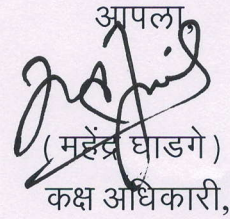 आपला,
( महेंद्र घाडगे )
कक्ष अधिकारी,